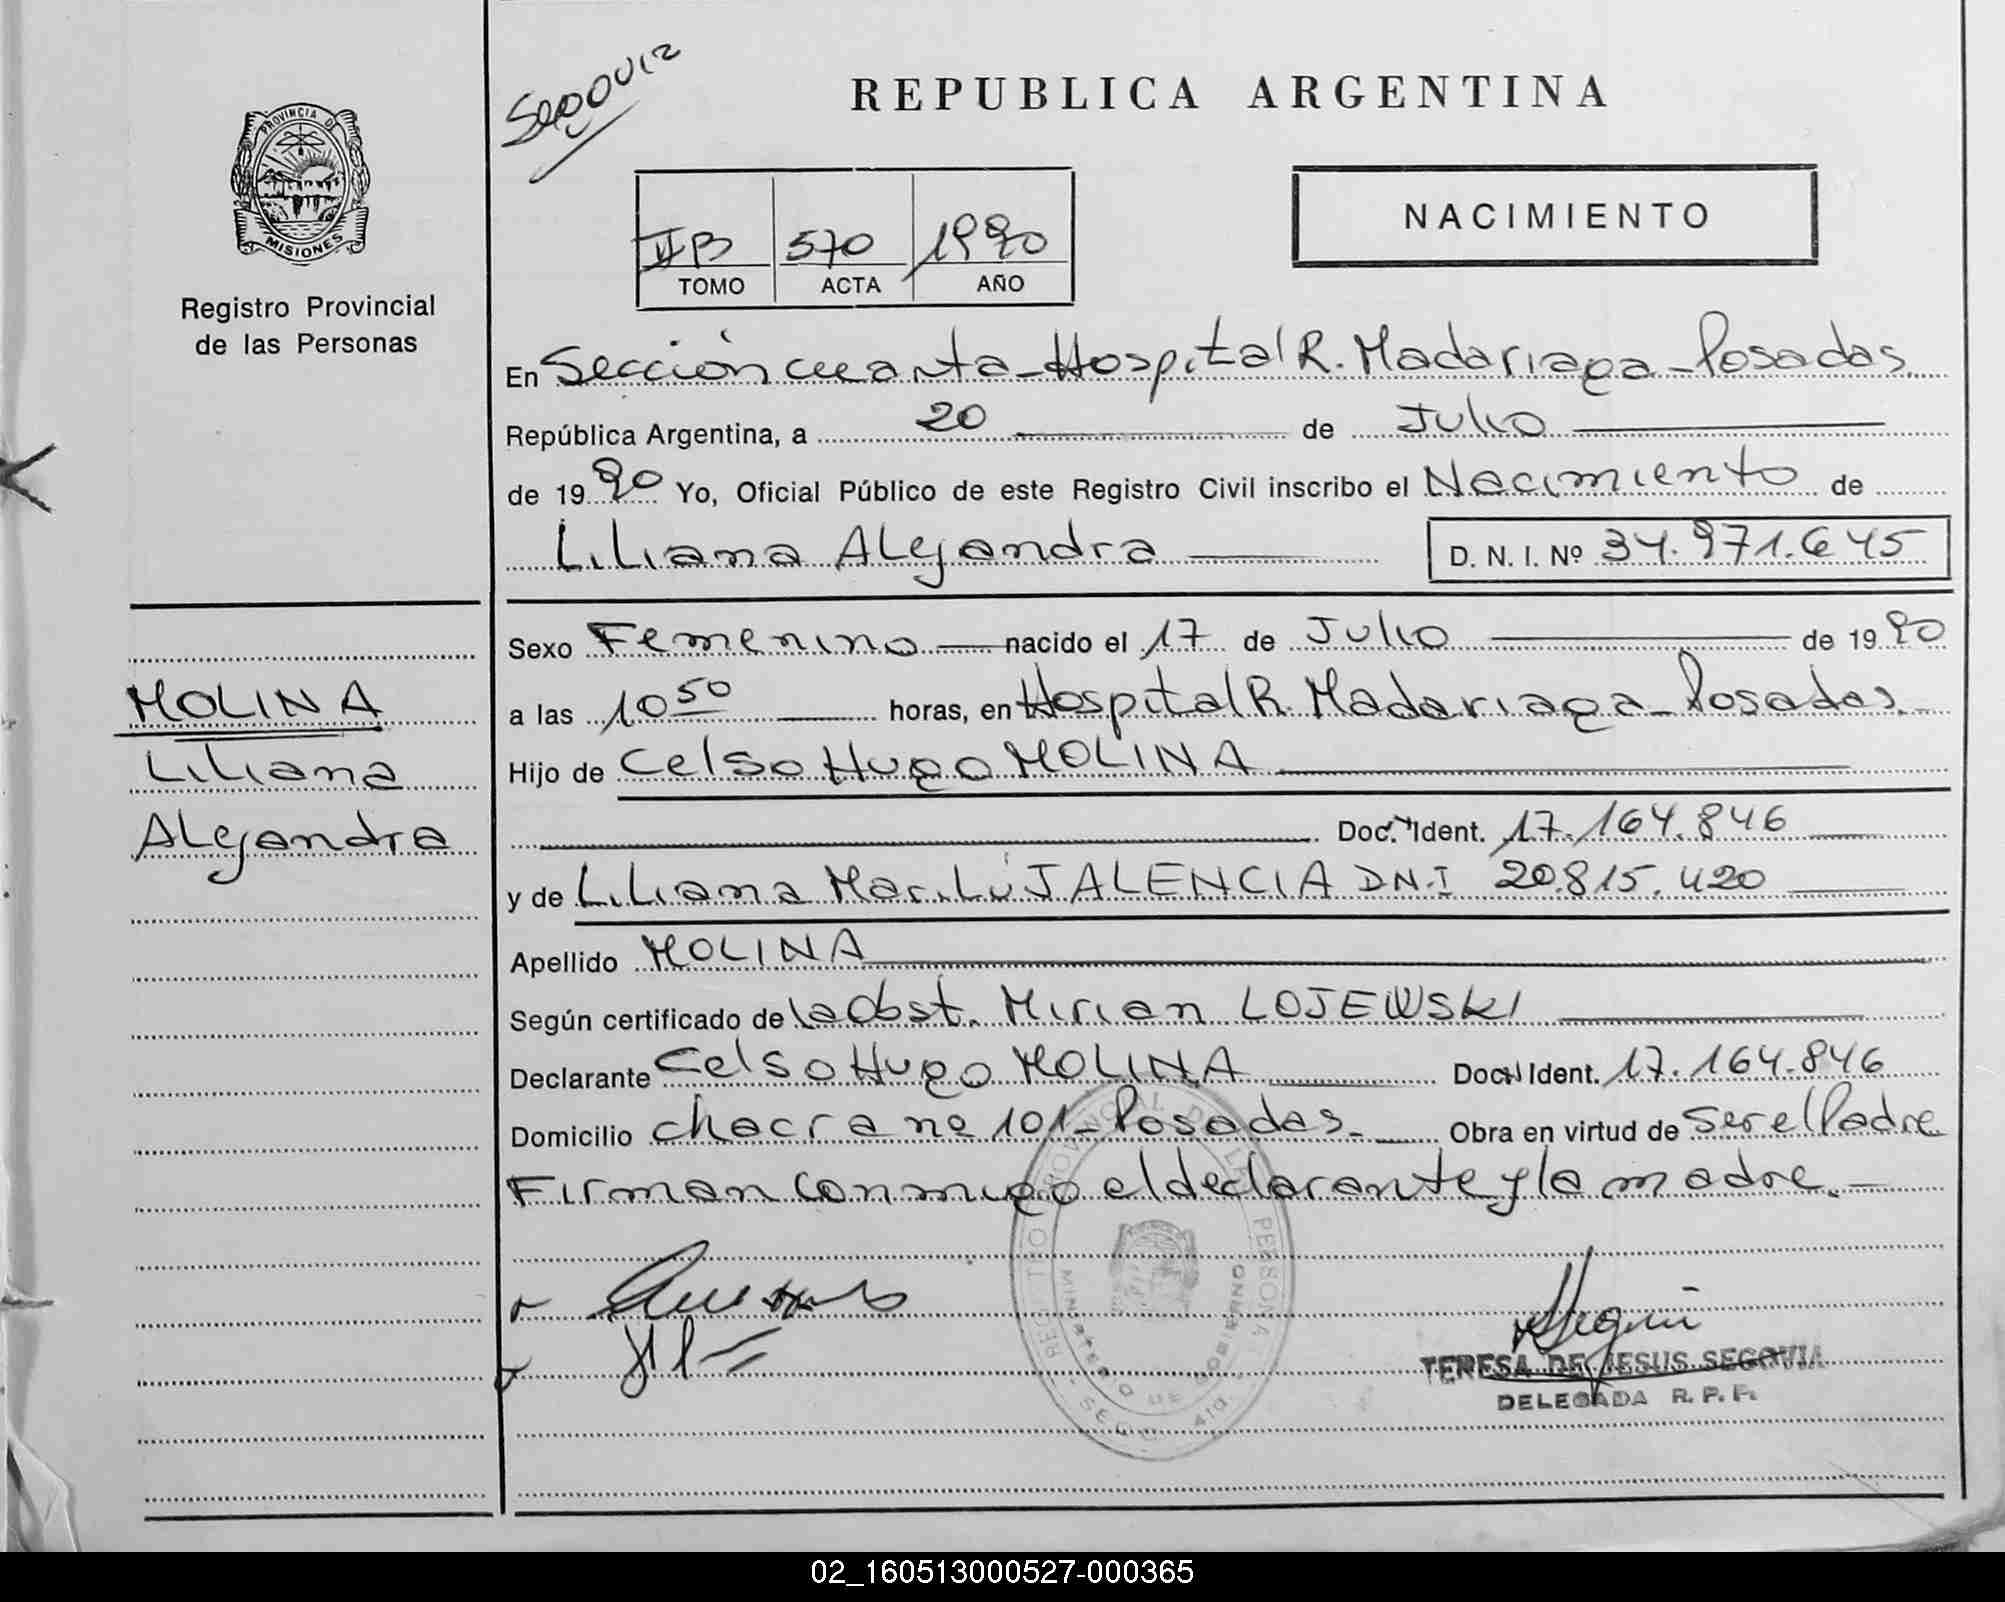 PROVINCIA DE
MISIONES
Registro Provincial
de las Personas
MOLINA
Liliana
Alejandra
REPUBLICA ARGENTINA
NACIMIENTO
II B 570 1990
TOMO ACTA AÑO
En Sección cuarta - Hospital R. Madariaga - Posadas
República Argentina, a 20 de Julio
de 1990 Yo, Oficial Público de este Registro Civil inscribo el Nacimiento de
Liliana Alejandra D. N. I. Nº 34.971.645
Sexo Femenino nacido el 17 de Julio de 1990
a las 10 50 horas, en Hospital R. Madariaga - Posadas
Hijo de Celso Hugo MOLINA
Doc. Ident. 17.164.846
y de Liliana Mari Lú JALENCIA DNI 20.815.420
Apellido MOLINA
Según certificado de la Obst. Mirian LOJEWSKI
Declarante Celso Hugo MOLINA Doc. Ident. 17.164.846
Domicilio chacra nº 101 - Posadas - Obra en virtud de ser el Padre
Firman conmigo el declarante y la madre. -
REGISTRO PROVINCIAL DE LAS PERSONAS
MINISTERIO DE GOBIERNO
TERESA DE JESUS SEGOVIA
DELEGADA R. P. P.
02_160513000527-000365